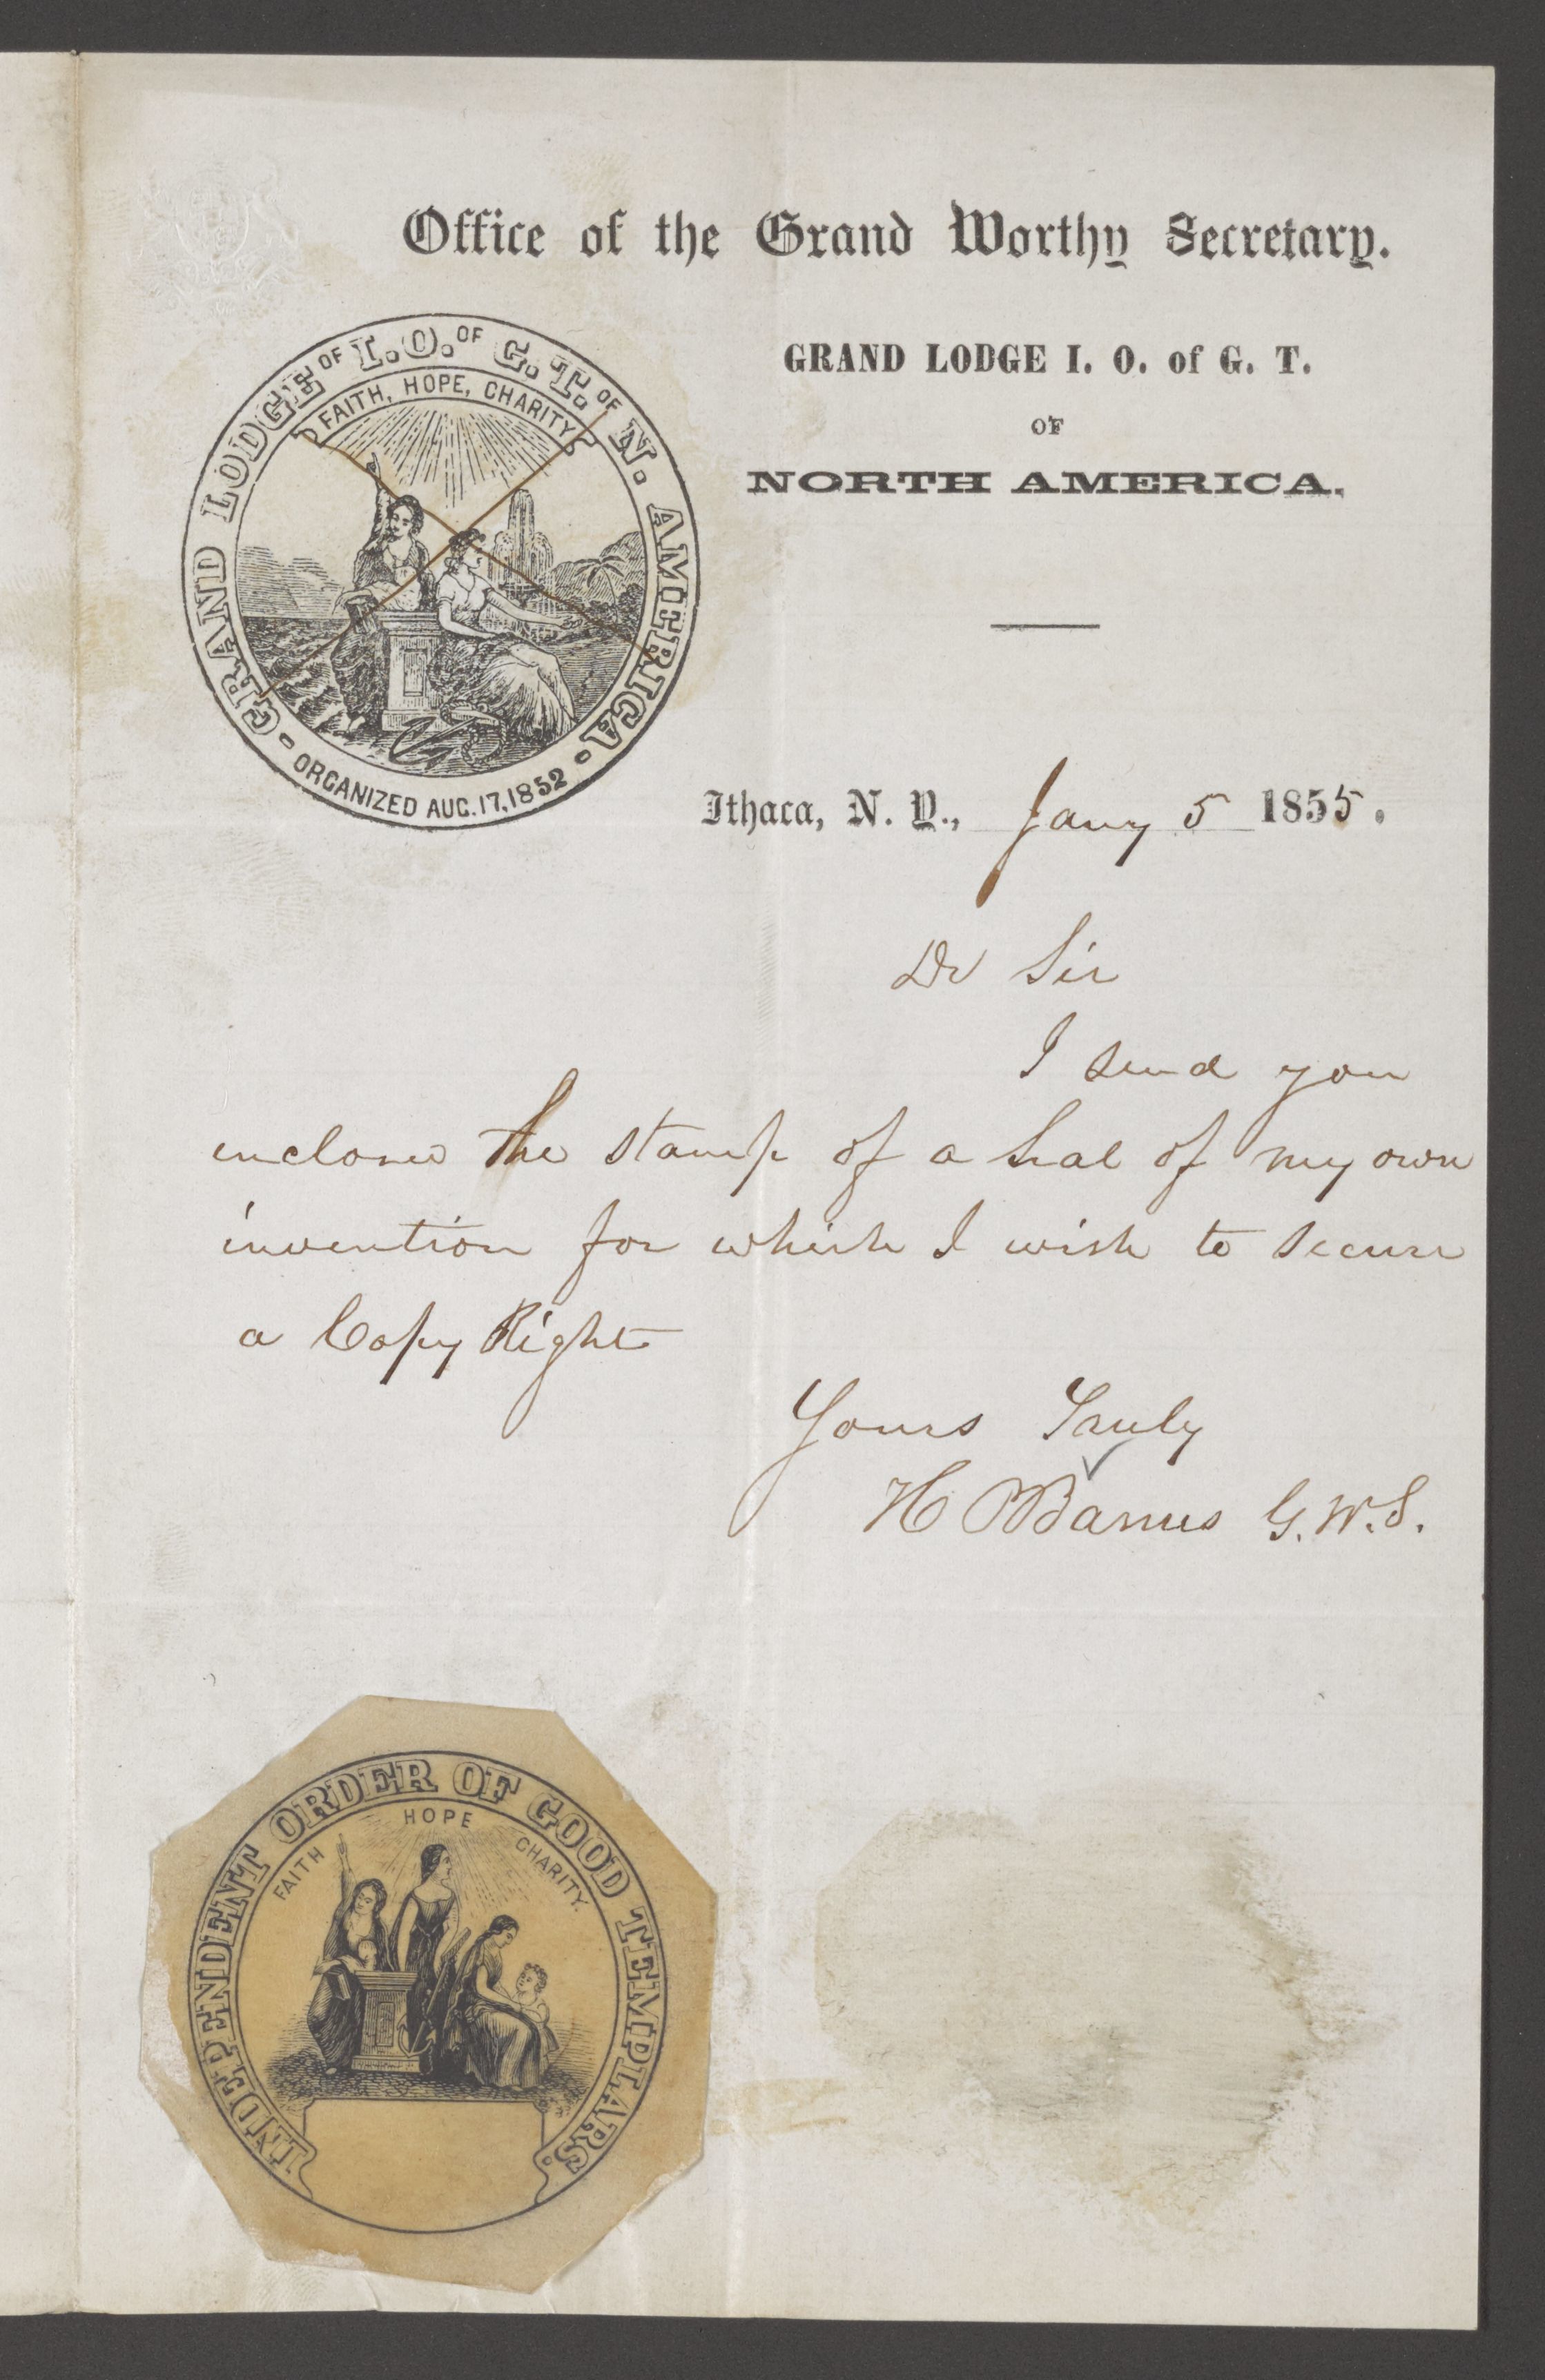 Office of the Grand Worthy Secretary.
GRAND LODGE OF I. O. OF G. T. OF N. AMERICA
FAITH, HOPE, CHARITY
ORGANIZED AUG. 17, 1852
GRAND LODGE I. O. of G. T.
OF
NORTH AMERICA.
Ithaca, N. Y., Jany 5 1855.
Dr Sir
I send you
enclosed the stamp of a Seal of my own
invention for which I wish to secure
a Copy Right
Yours Truly
H G.W.S.
INDEPENDENT ORDER OF GOOD TEMPLARS.
FAITH HOPE CHARITY.